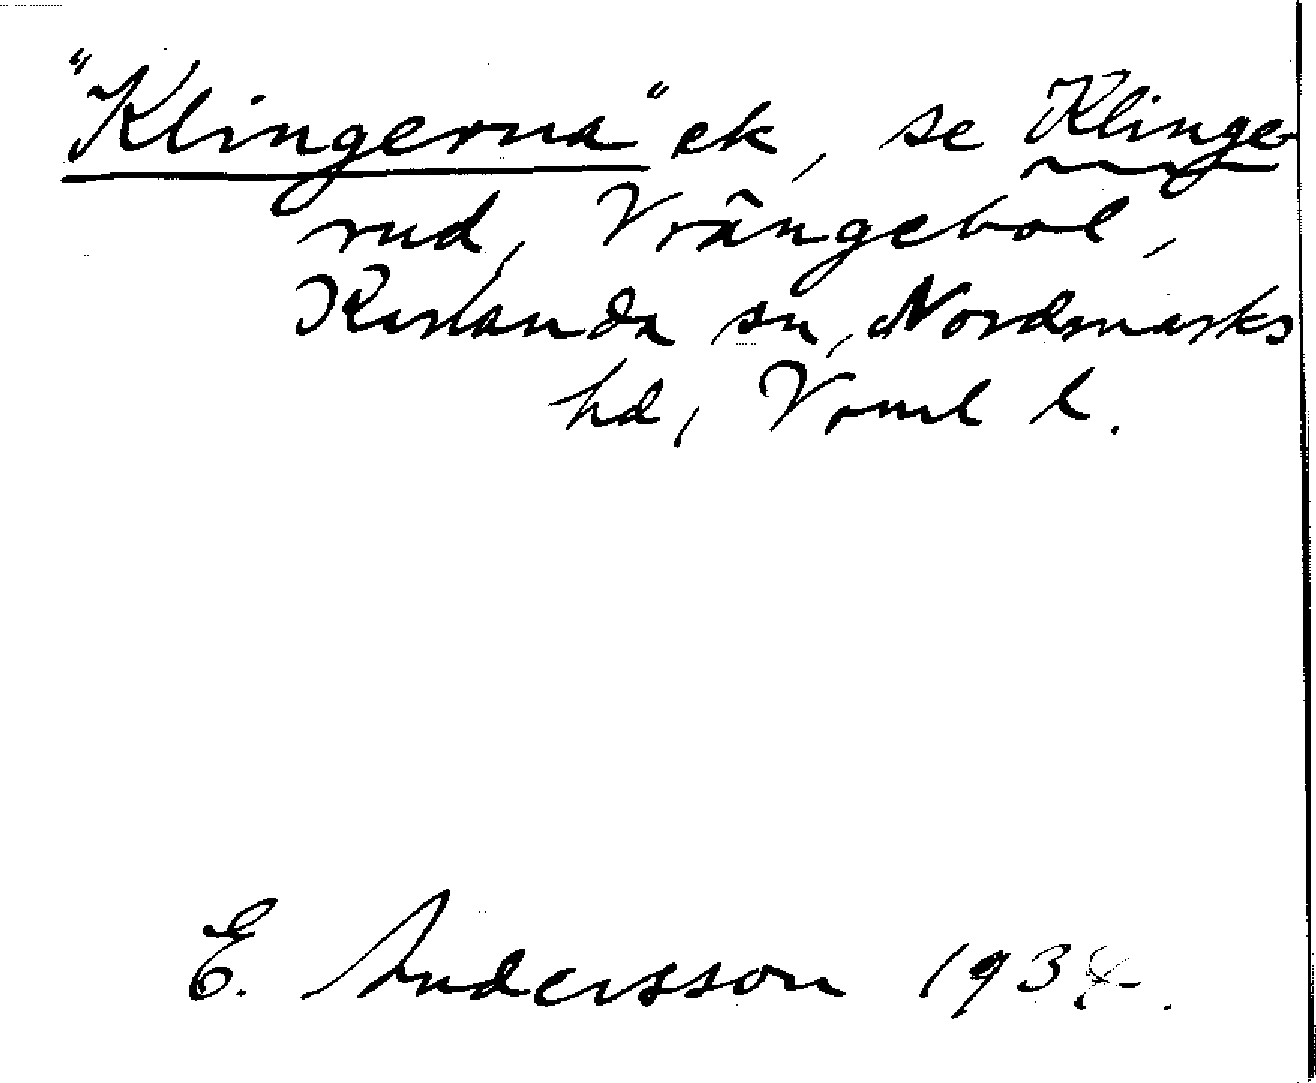 "Klingerna" ek, se Klinge-
rud, Vrångebol,
Karlanda sn, Nordmarks
hd, Vrml l.
E. Andersson 1934.